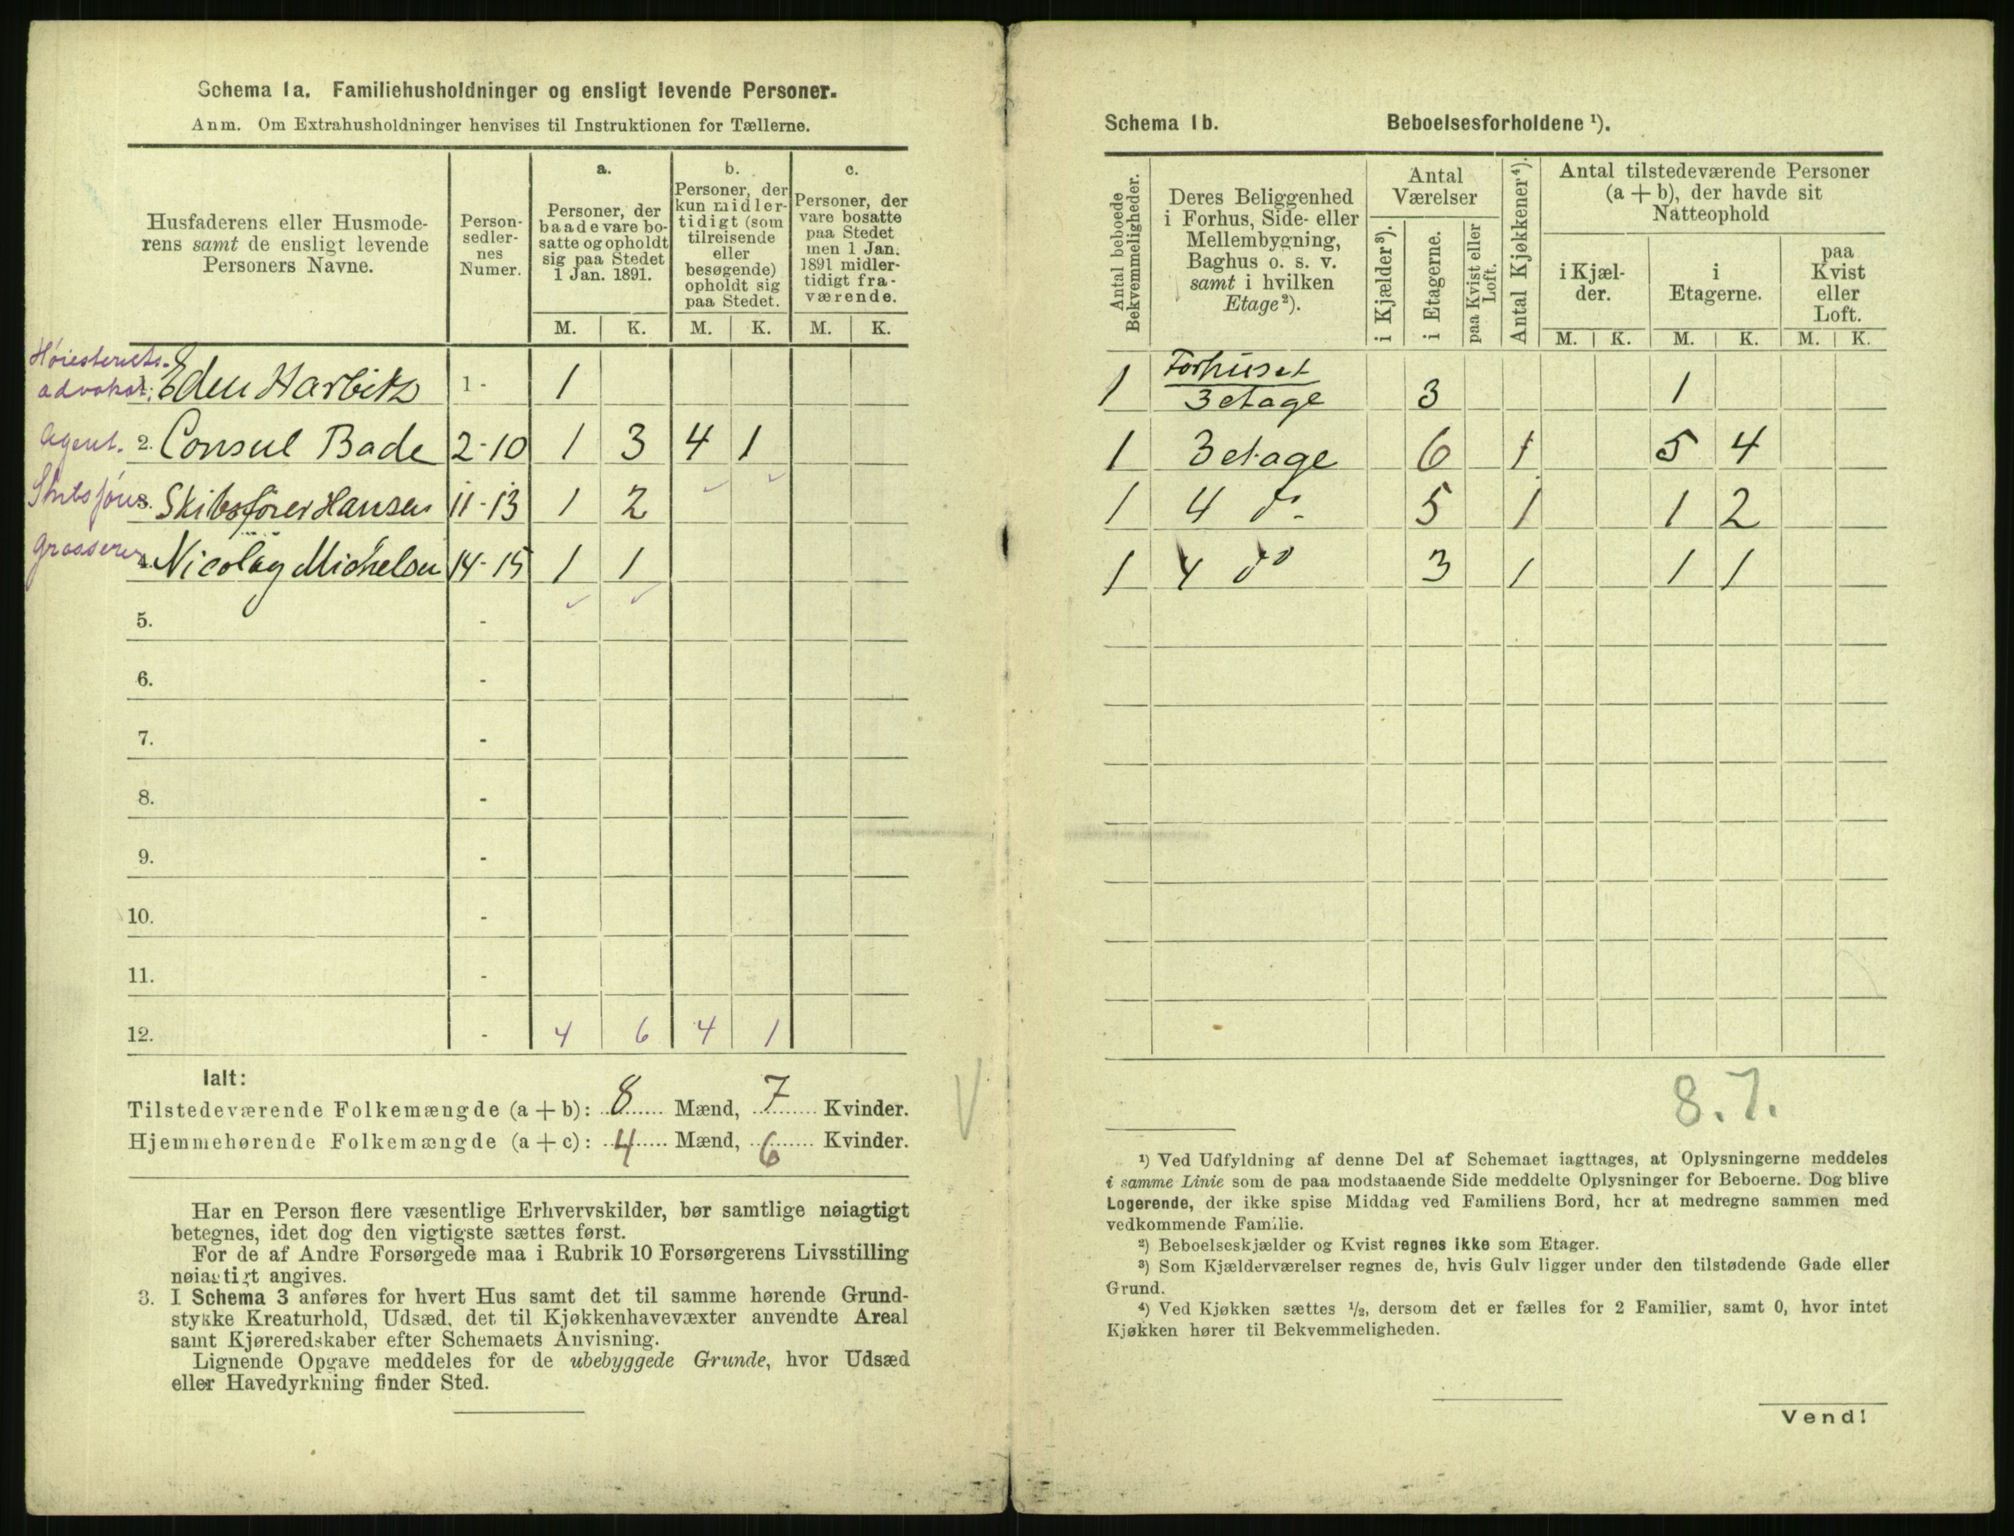 Schema 1a. Familiehusholdninger og ensligt levende Personer.
Anm. Om Extrahusholdninger henvises til Instruktionen for Tællerne.
Husfaderens eller Husmode-
rens samt de ensligt levende
Personers Navne.
Person-
sedler-
nes
Numer.
a.
Personer, der
baade vare bo-
satte og opholdt
sig paa Stedet
1 Jan. 1891.
b.
Personer, der
kun midler-
tidigt (som
tilreisende
eller
besøgende)
opholdt sig
paa Stedet.
c.
Personer, der
vare bosatte
paa Stedet
men 1 Jan.
1891 midler-
tidigt fra-
værende.
M. K. M. K. M. K.
Høiesterets-
advokat; Eden Harbitz 1 - 1
Agent. 2. Consul Bade 2-10 1 3 4 1
Skibsfører Hansen 11-13 1 2
Grosserer Nicolay Michelsen 14-15 1 1
5. -
6. -
7. -
8. -
9. -
10. -
11. -
12. - 4 6 4 1
Ialt:
Tilstedeværende Folkemængde (a + b): 8 Mænd, 7 Kvinder.
Hjemmehørende Folkemængde (a + c): 4 Mænd, 6 Kvinder.
Har en Person flere væsentlige Erhvervskilder, bør samtlige nøiagtigt
betegnes, idet dog den vigtigste sættes først.
For de af Andre Forsørgede maa i Rubrik 10 Forsørgerens Livsstilling
nøiagtigt angives.
3. I Schema 3 anføres for hvert Hus samt det til samme hørende Grund-
stykke Kreaturhold, Udsæd, det til Kjøkkenhavevæxter anvendte Areal
samt Kjøreredskaber efter Schemaets Anvisning.
Lignende Opgave meddeles for de ubebyggede Grunde, hvor Udsæd
eller Havedyrkning finder Sted.
Schema 1b. Beboelsesforholdene ¹).
Antal beboede
Bekvemmeligheder.
Deres Beliggenhed
i Forhus, Side- eller
Mellembygning,
Baghus o. s. v.
samt i hvilken
Etage²).
Antal
Værelser
i Kjælder³).
i Etagerne.
paa Kvist eller
Loft.
Antal Kjøkkener⁴).
Antal tilstedeværende Personer
(a + b), der havde sit
Natteophold
i Kjæl-
der.
i
Etagerne.
paa
Kvist
eller
Loft.
M. K. M. K. M. K.
1 Forhuset
3 etage 3 1
1 3 etage 6 1 5 4
1 4 do 5 1 1 2
1 4 do 3 1 1 1
8. 7.
¹) Ved Udfyldning af denne Del af Schemaet iagttages, at Oplysningerne meddeles
i samme Linie som de paa modstaaende Side meddelte Oplysninger for Beboerne. Dog blive
Logerende, der ikke spise Middag ved Familiens Bord, her at medregne sammen med
vedkommende Familie.
²) Beboelseskjælder og Kvist regnes ikke som Etager.
³) Som Kjælderværelser regnes de, hvis Gulv ligger under den tilstødende Gade eller
Grund.
⁴) Ved Kjøkken sættes ½, dersom det er fælles for 2 Familier, samt 0, hvor intet
Kjøkken hører til Bekvemmeligheden.
Vend!